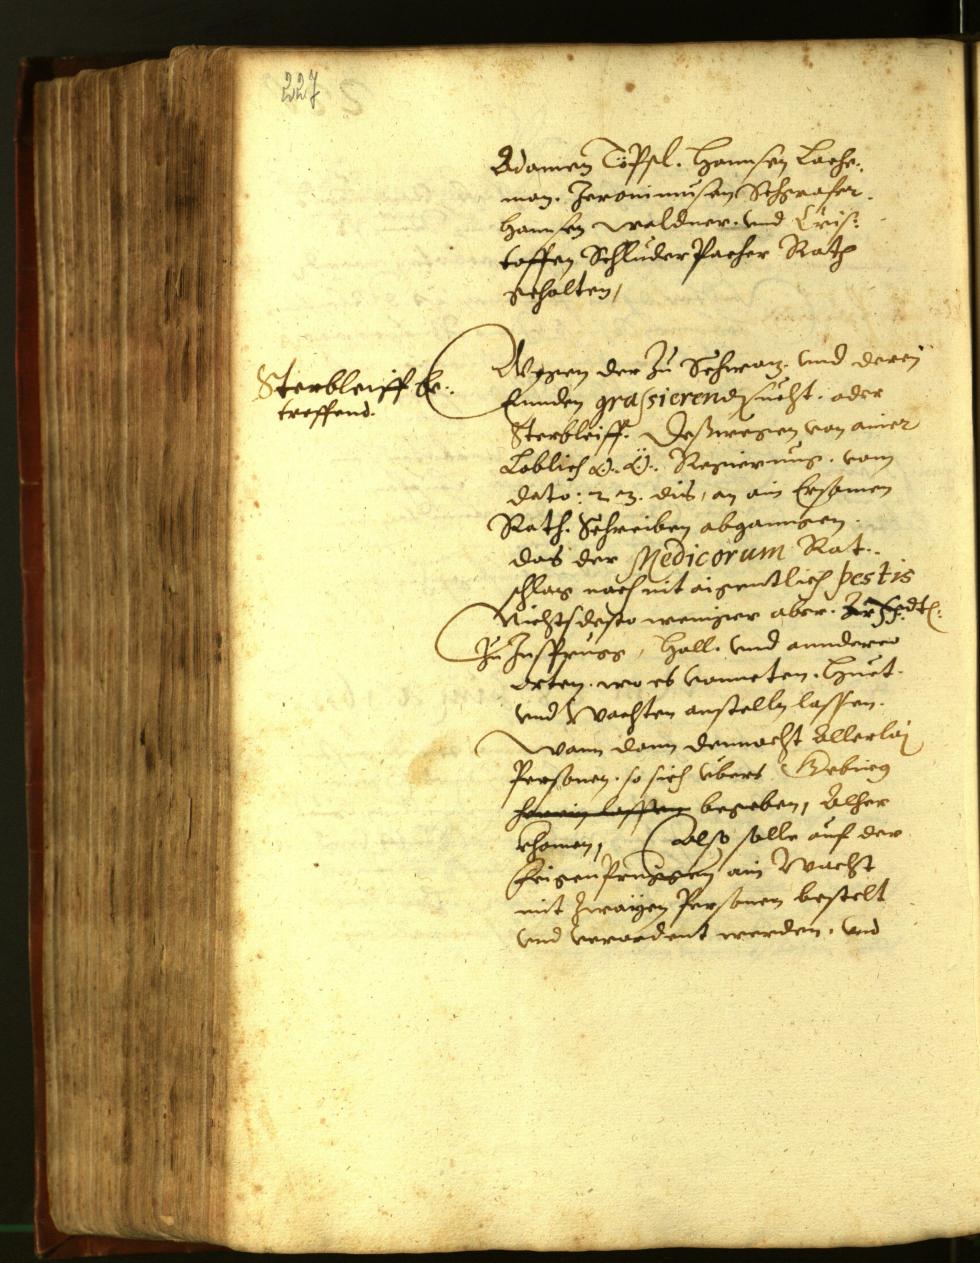 227
Adamen Töpsl. Hannsen Lache¬
man. Jeronimusen Schgrafer.
Hannsen Waldner. vnd Cris¬
toffen SchluderPacher Rath
gehalten,
Sterbleiff be¬
treffend.
Wegen der zu Schwaz. vnd deren
Ennden grassierend sucht. oder
Sterbleiff. Desswegen von ainer
Loblich O. Ö. Regierung. vom
dato: 23. dis, an ain Ersamen
Rath. Schreiben abgangen.
das der Medicorum Rat¬
schlag nach nit aigentlich pestis
Nichtsdesto weniger aber.
Zu Insprugg, Hall. vnd anndern
orten. wo es vonneten. Huet.
vnd Wachten anstelln lassen.
Wann dann dennacht Allerlaj
Personen. so sich übers Gebürg
herein lassen begeben, Alher
khomen, Also solle auf der
Eisenpruggen ain Wacht
mit zwayen Personen bestelt
vnd verordent werden. vnd